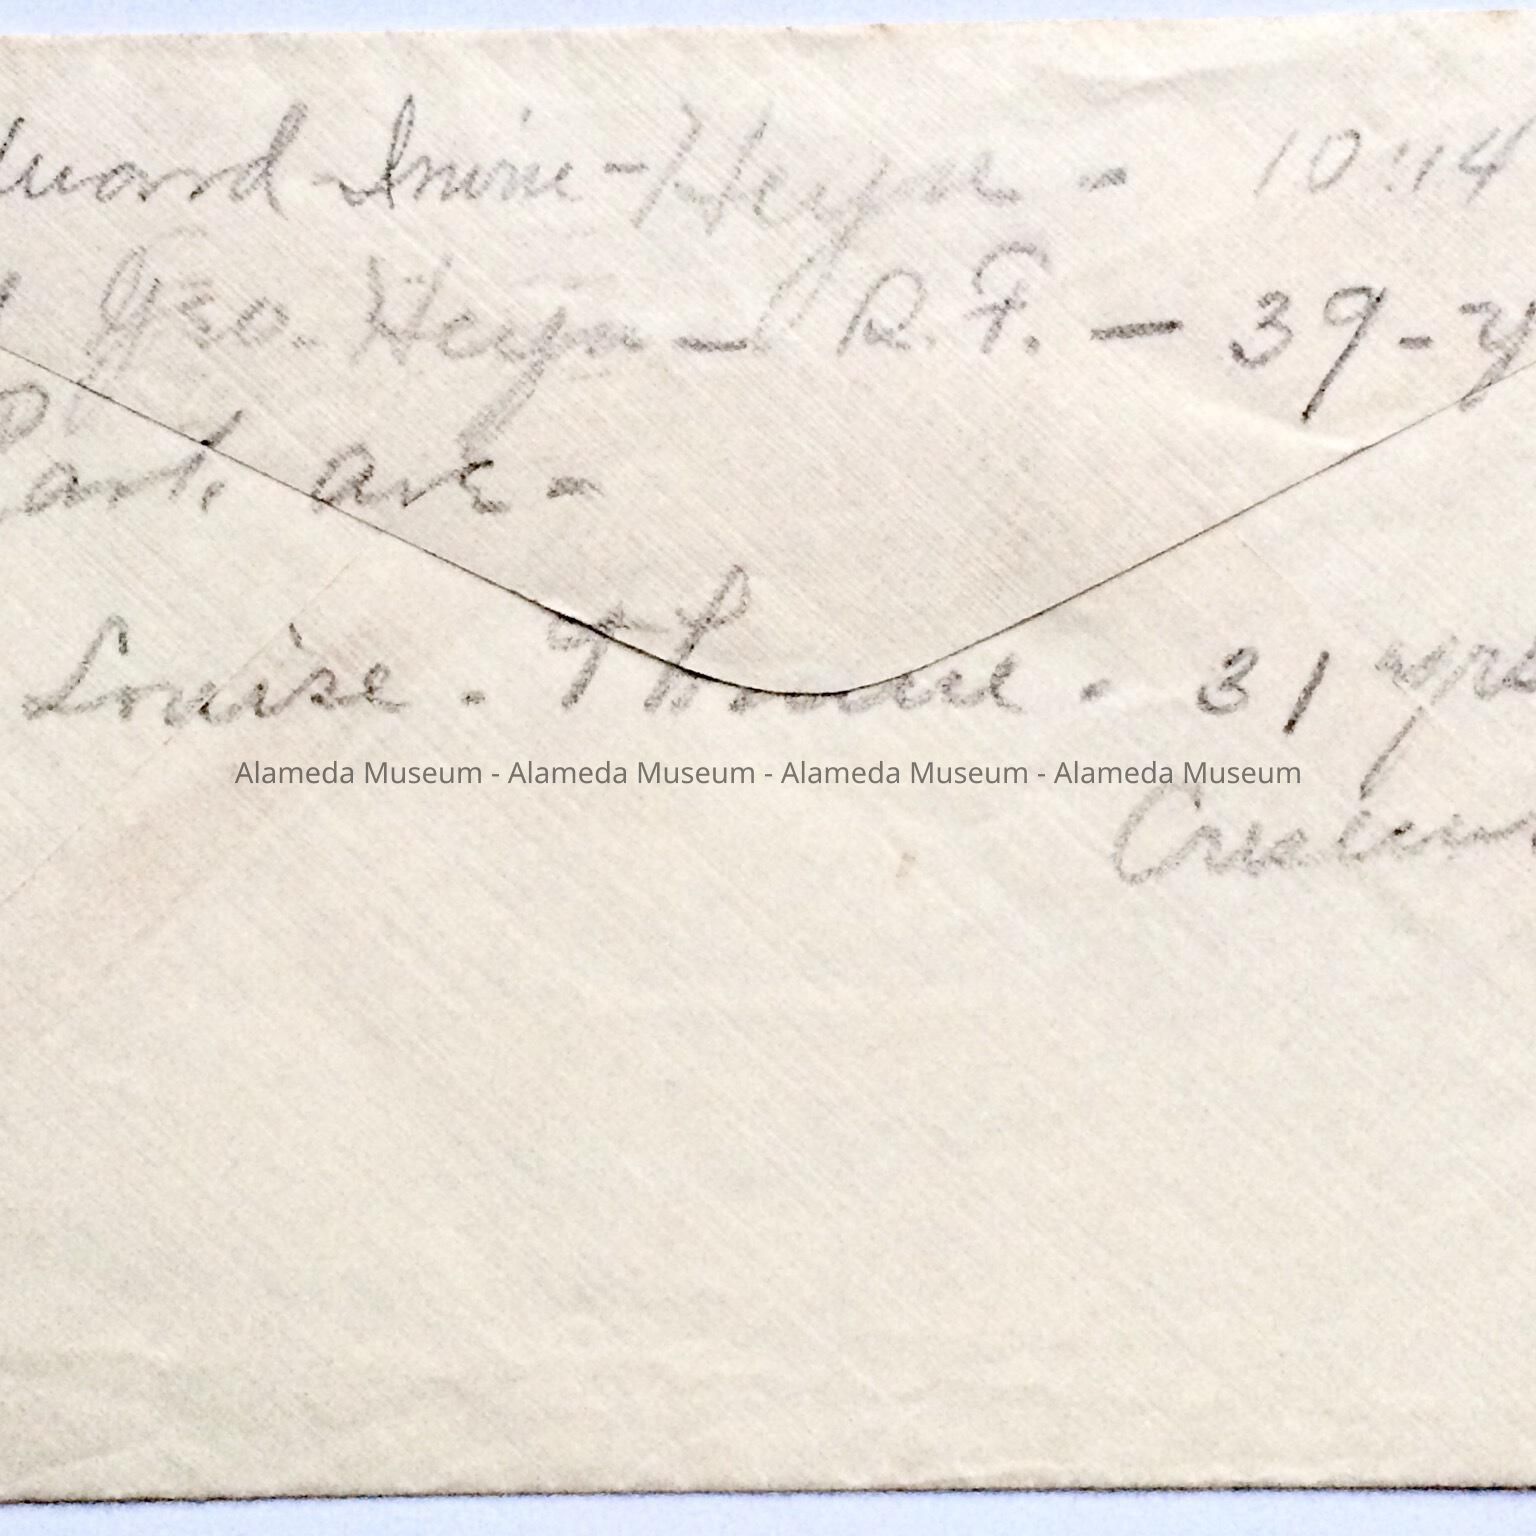 Irvine - Heyn - 10:14
Geo. Heyn - R. F. - 39 -
Park ave -
Louise - Thoene - 31 yrs
Alameda Museum - Alameda Museum - Alameda Museum - Alameda Museum